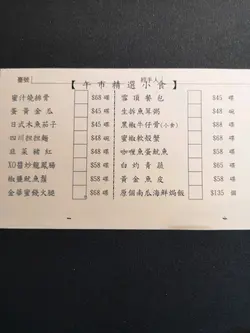 臺號 經手人
【午市精選小食】
蜜汁燒排骨 $68 碟 雪頂餐包 $45 碟
蛋黃金瓜 $45 碟 生拆魚茸粥 $48 碟
日式木魚茄子 $45 碟 黑椒牛仔骨(小食) $88 碟
四川担担麵 $48 碟 蜜椒軟殼蟹 $58 碟
韭菜豬紅 $48 碟 咖喱魚蛋魷魚 $58 碟
XO醬炒龍鳳腸 $58 碟 白灼青蔬 $65 碟
椒鹽魷魚鬚 $58 碟 黃金魚皮 $58 碟
金華蜜餞火腿 $68 碟 原個南瓜海鮮焗飯 $135 個